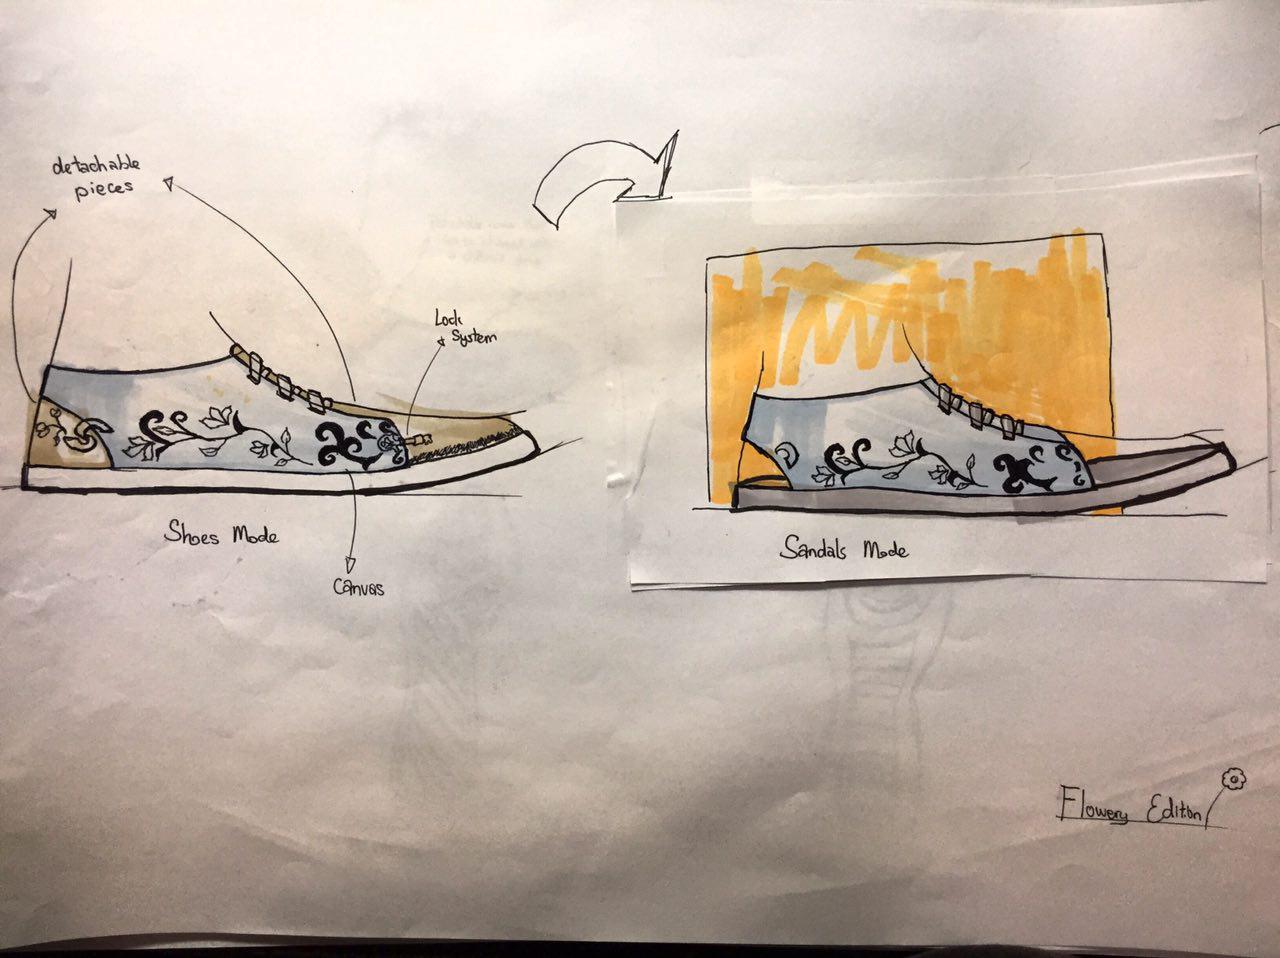 detachable
pieces
Lock
System
Shoes Mode
Canvas
Sandals Mode
Flowery Edition